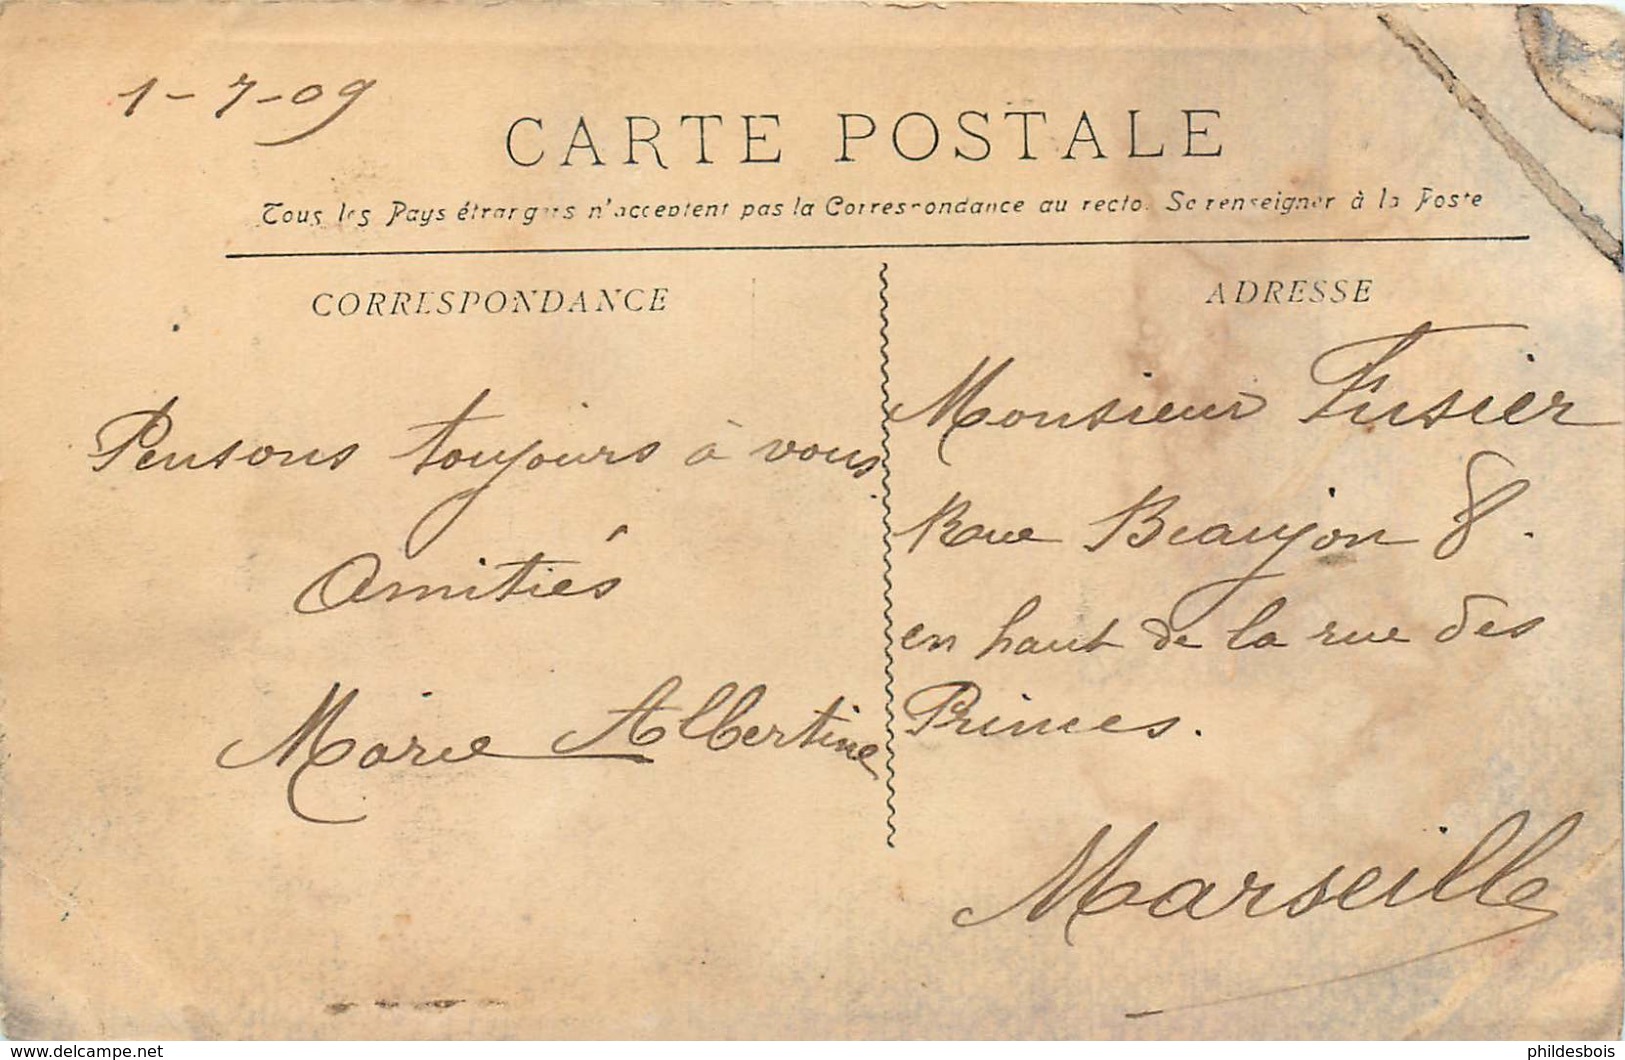 1-7-09
CARTE POSTALE
Tous les Pays étrangers n'acceptent pas la Correspondance au recto. Se renseigner à la Poste
CORRESPONDANCE
Pensons toujours à vous.
Amitiés
Marie Albertine
ADRESSE
Monsieur Fusier
Rue Beaujon 8.
en haut de la rue des
Princes.
Marseille
www.delcampe.net
phildesbois